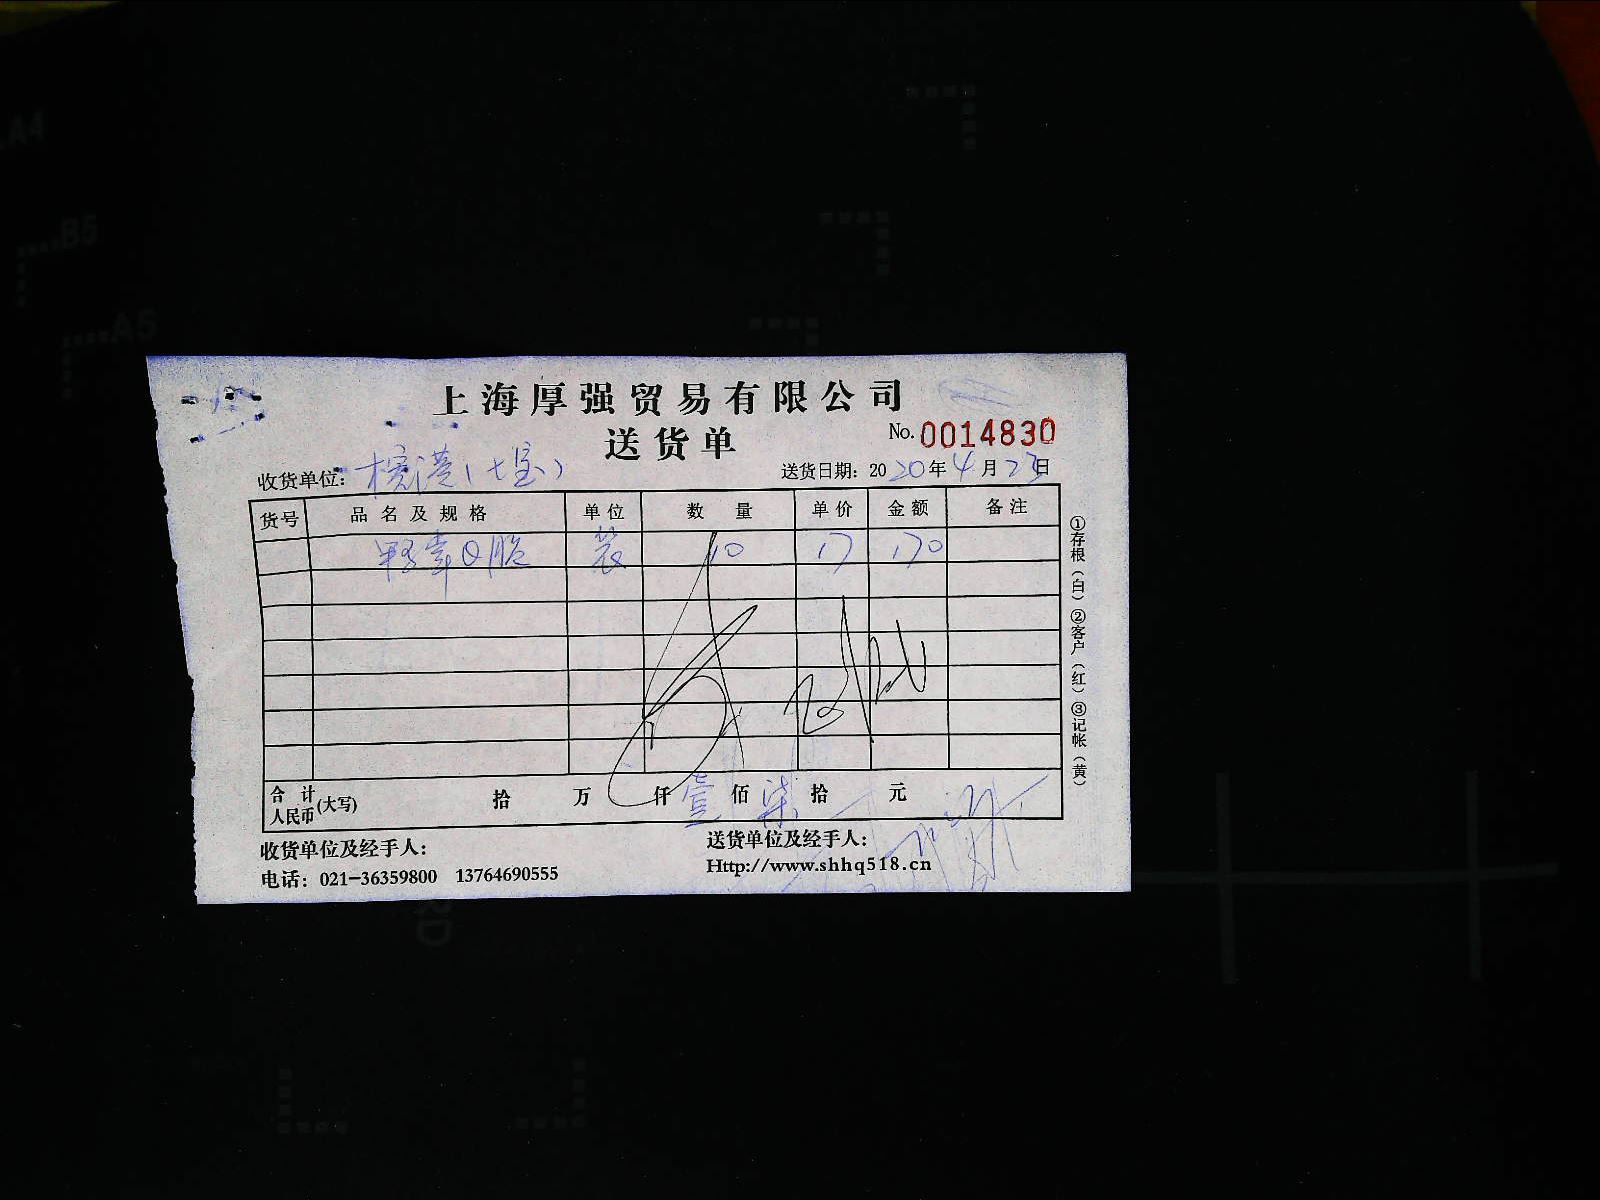 A4
B5
A5
上海厚强贸易有限公司
送货单
No. 0014830
收货单位: 港(七宝) 送货日期: 2020年4月23日
货号 品名及规格 单位 数量 单价 金额 备注
10 17 170
合计人民币(大写) 拾 万 仟 壹 佰 柒 拾 元
收货单位及经手人: 送货单位及经手人:
电话: 021-36359800 13764690555 Http://www.shhq518.cn
①存根(白)②客户(红)③记帐(黄)